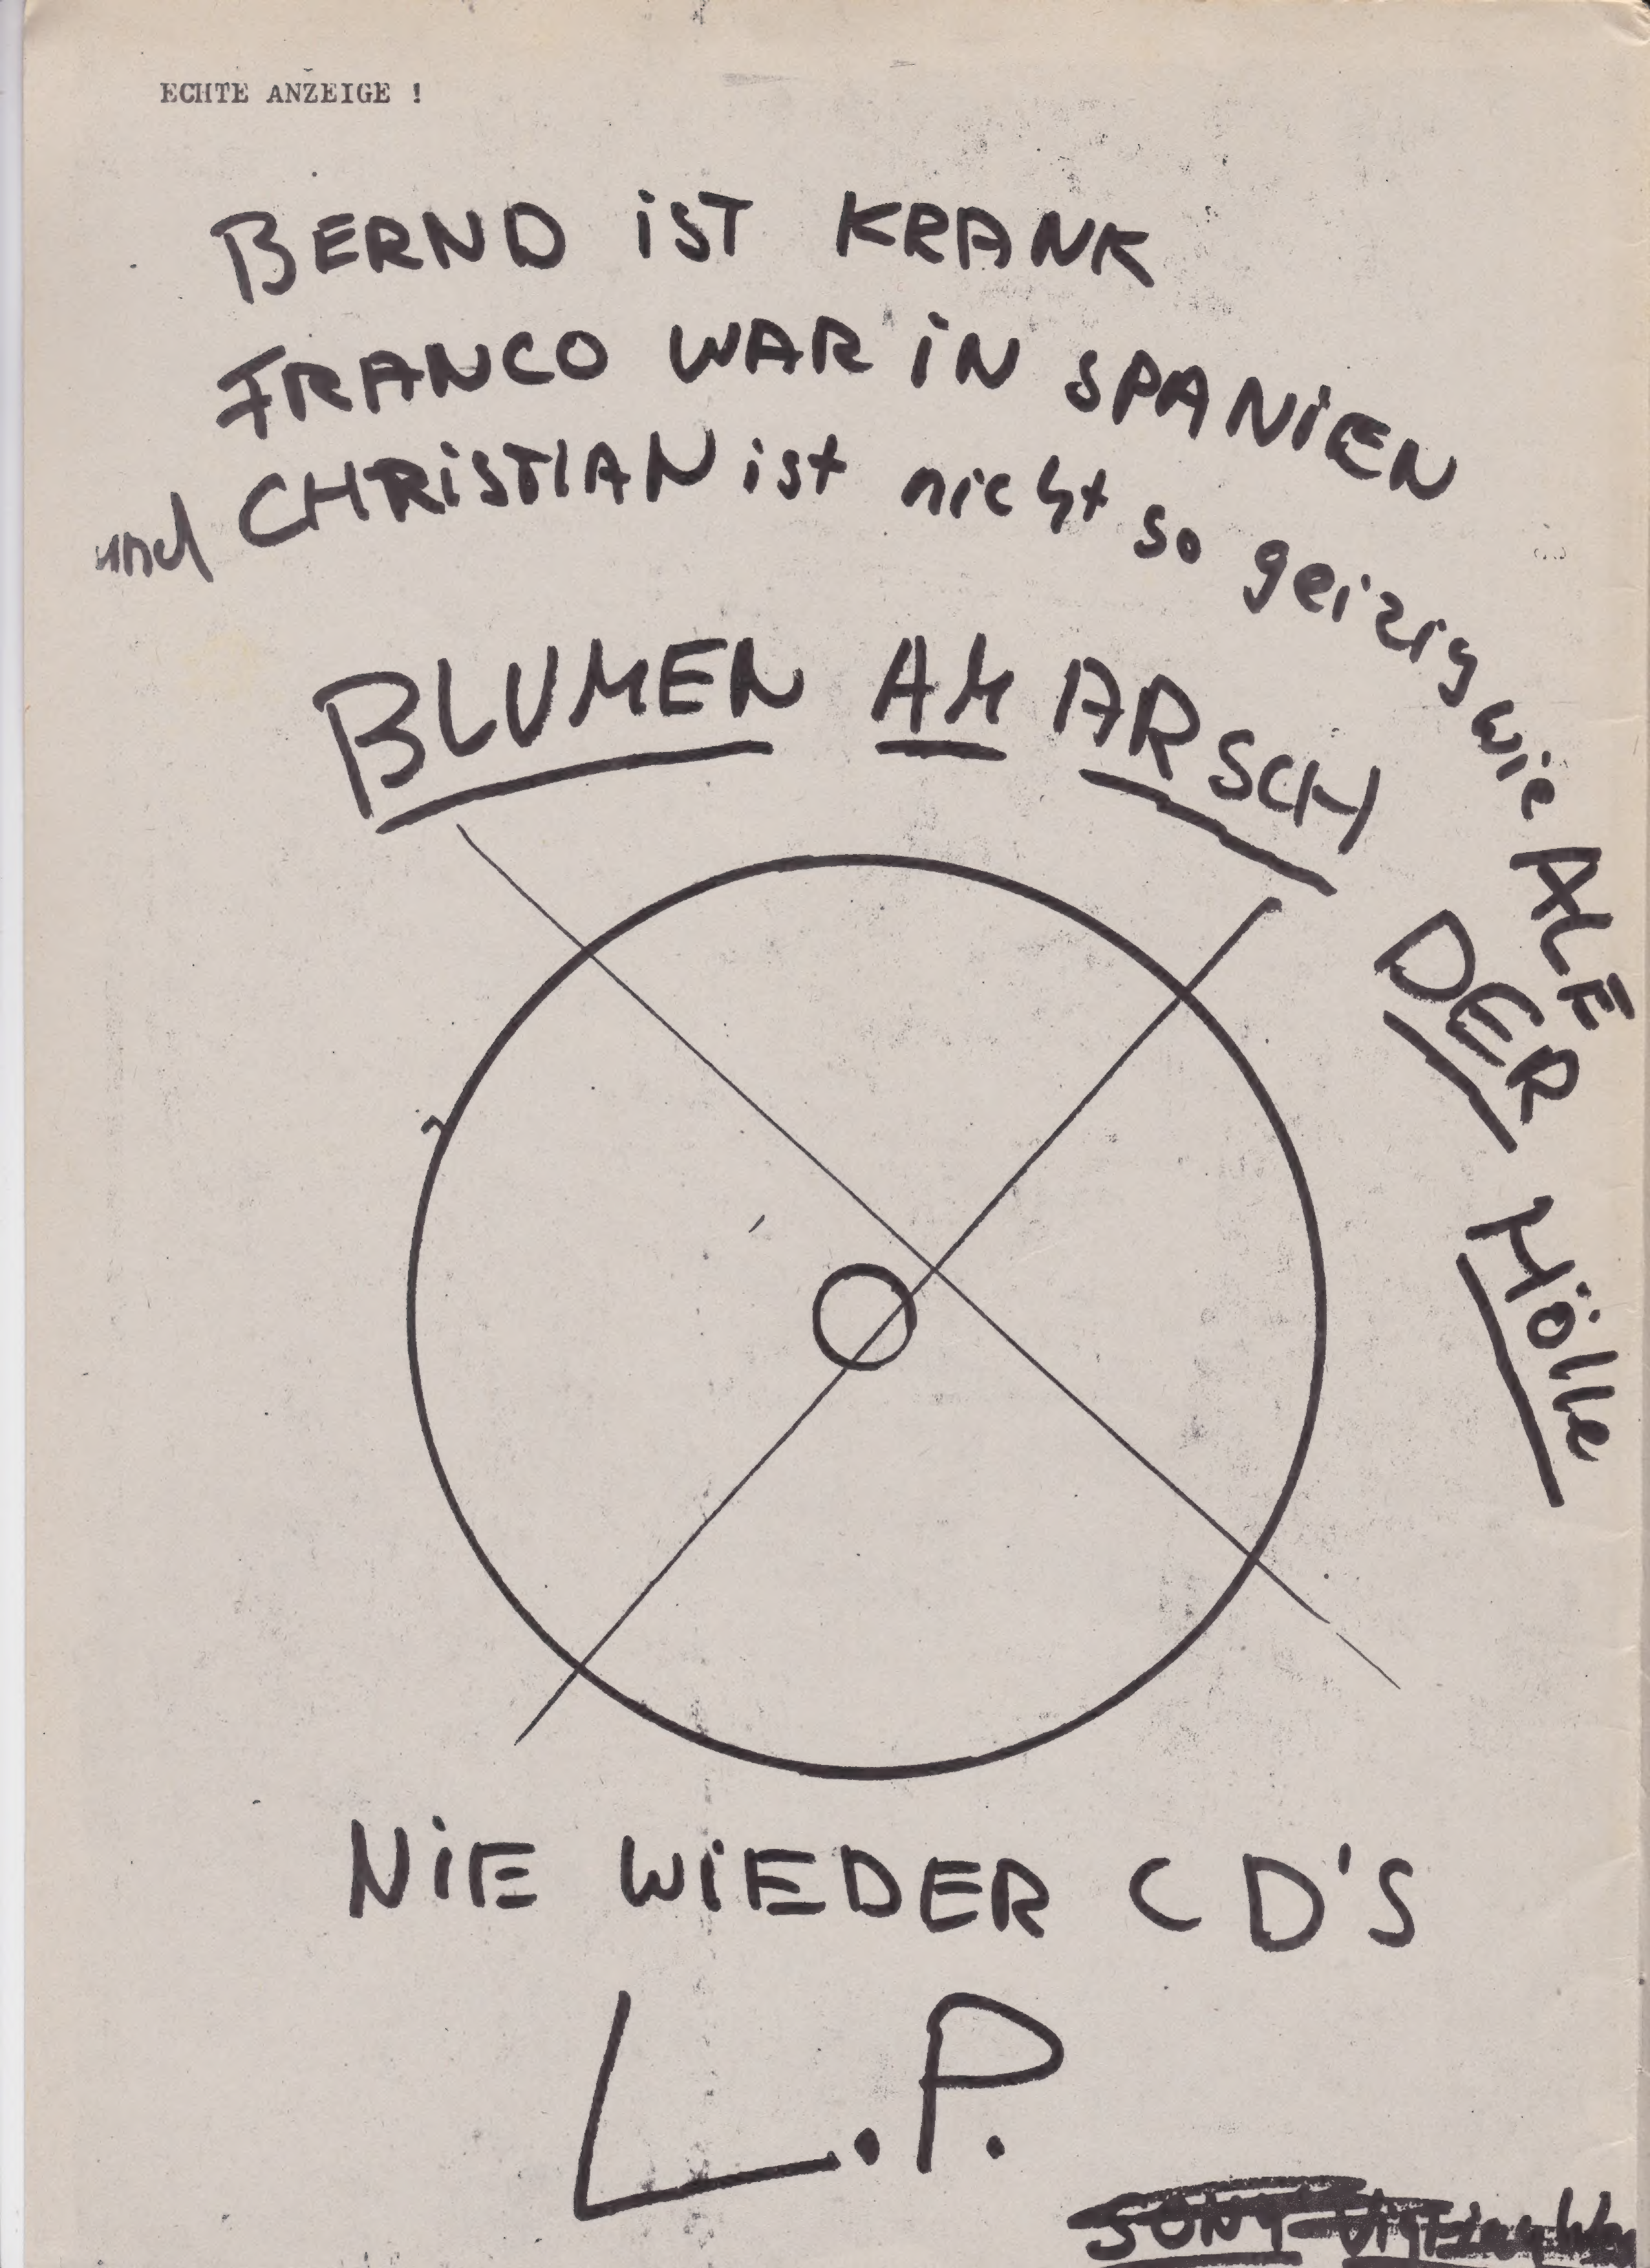 ECHTE ANZEIGE !
BERND iST KRANK
FRANCO WAR iN SPANiEN
und CHRiSTIAN ist nicht so geizig wie ALÉ
BLUMEN AM ARSCH DER Hölle
NiE WiEDER CD'S
L.P.
SONY